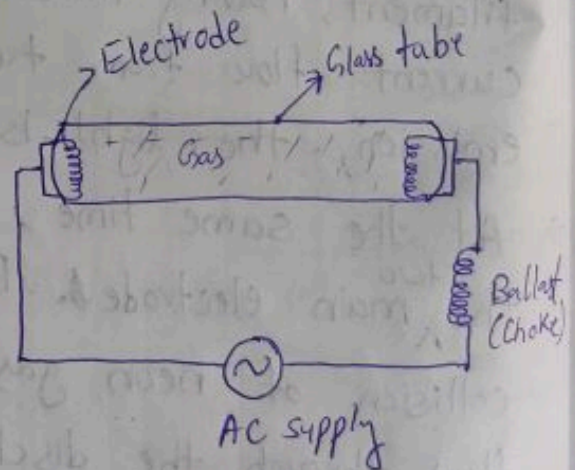 Electrode
Glass tube
Gas
Ballast
(Choke)
AC supply